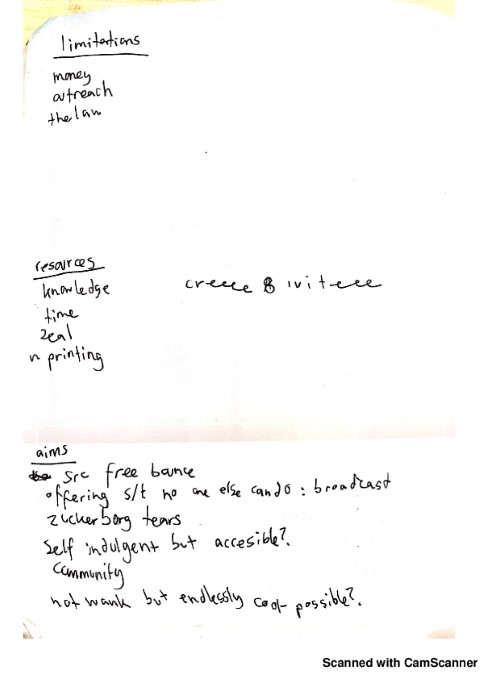 limitations
money
outreach
the law
resources
knowledge
time
zeal
n printing
aims
src free bounce
offering s/t no one else can do : broadcast
zuckerborg tears
self indulgent but accesible?
community
not wank but endlessly cool- possible?
Scanned with CamScanner